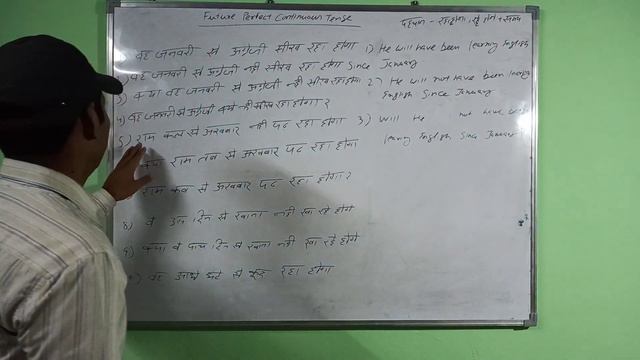 Future Perfect Continuous Tense
पहचान - रहा होगा, रहे होंगे + समय
वह जनवरी से अंग्रेजी सीख रहा होगा 1) He will have been learning English
Since January
वह जनवरी से अंग्रेजी नहीं सीख रहा होगा
3) क्या वह जनवरी से अंग्रेजी नहीं सीख रहा होगा 2) He will not have been
English Since January
4) वह जनवरी से अंग्रेजी क्यों नहीं सीख रहा होगा ?
5) राम कल से अखबार नहीं पढ़ रहा होगा 3) Will He not have
learning English Since January
क्या राम कब से अखबार पढ़ रहा होगा
राम कब से अखबार पढ़ रहा होगा ?
8) वे दिन से खाना नहीं खा रहे होंगे
9) क्या वे पाच दिन से खाना नहीं खा रहे होंगे
वह आधे घंटे से रहा होगा